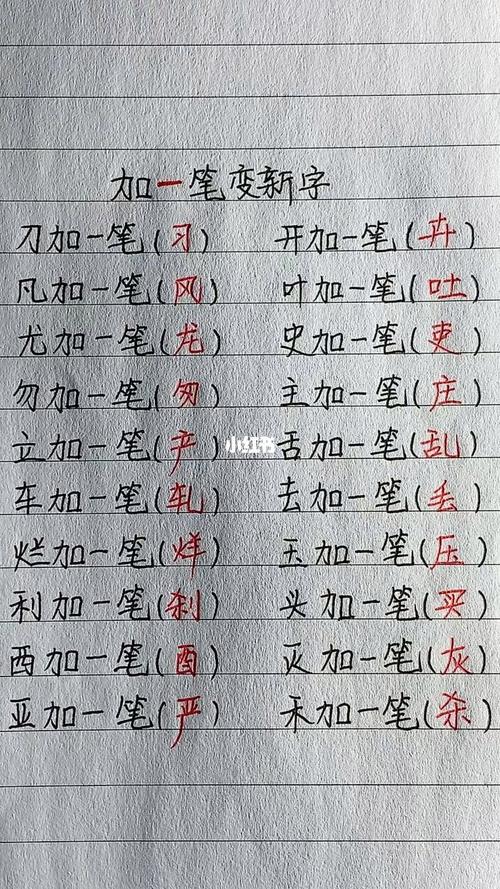 加一笔变新字
刀加一笔(习) 开加一笔(卉)
凡加一笔(风) 叶加一笔(吐)
尤加一笔(龙) 史加一笔(吏)
勿加一笔(匆) 主加一笔(庄)
立加一笔(产) 舌加一笔(乱)
小红书
车加一笔(轧) 去加一笔(丢)
烂加一笔(烊) 玉加一笔(压)
利加一笔(刹) 头加一笔(买)
西加一笔(酉) 灭加一笔(灰)
亚加一笔(严) 禾加一笔(杀)